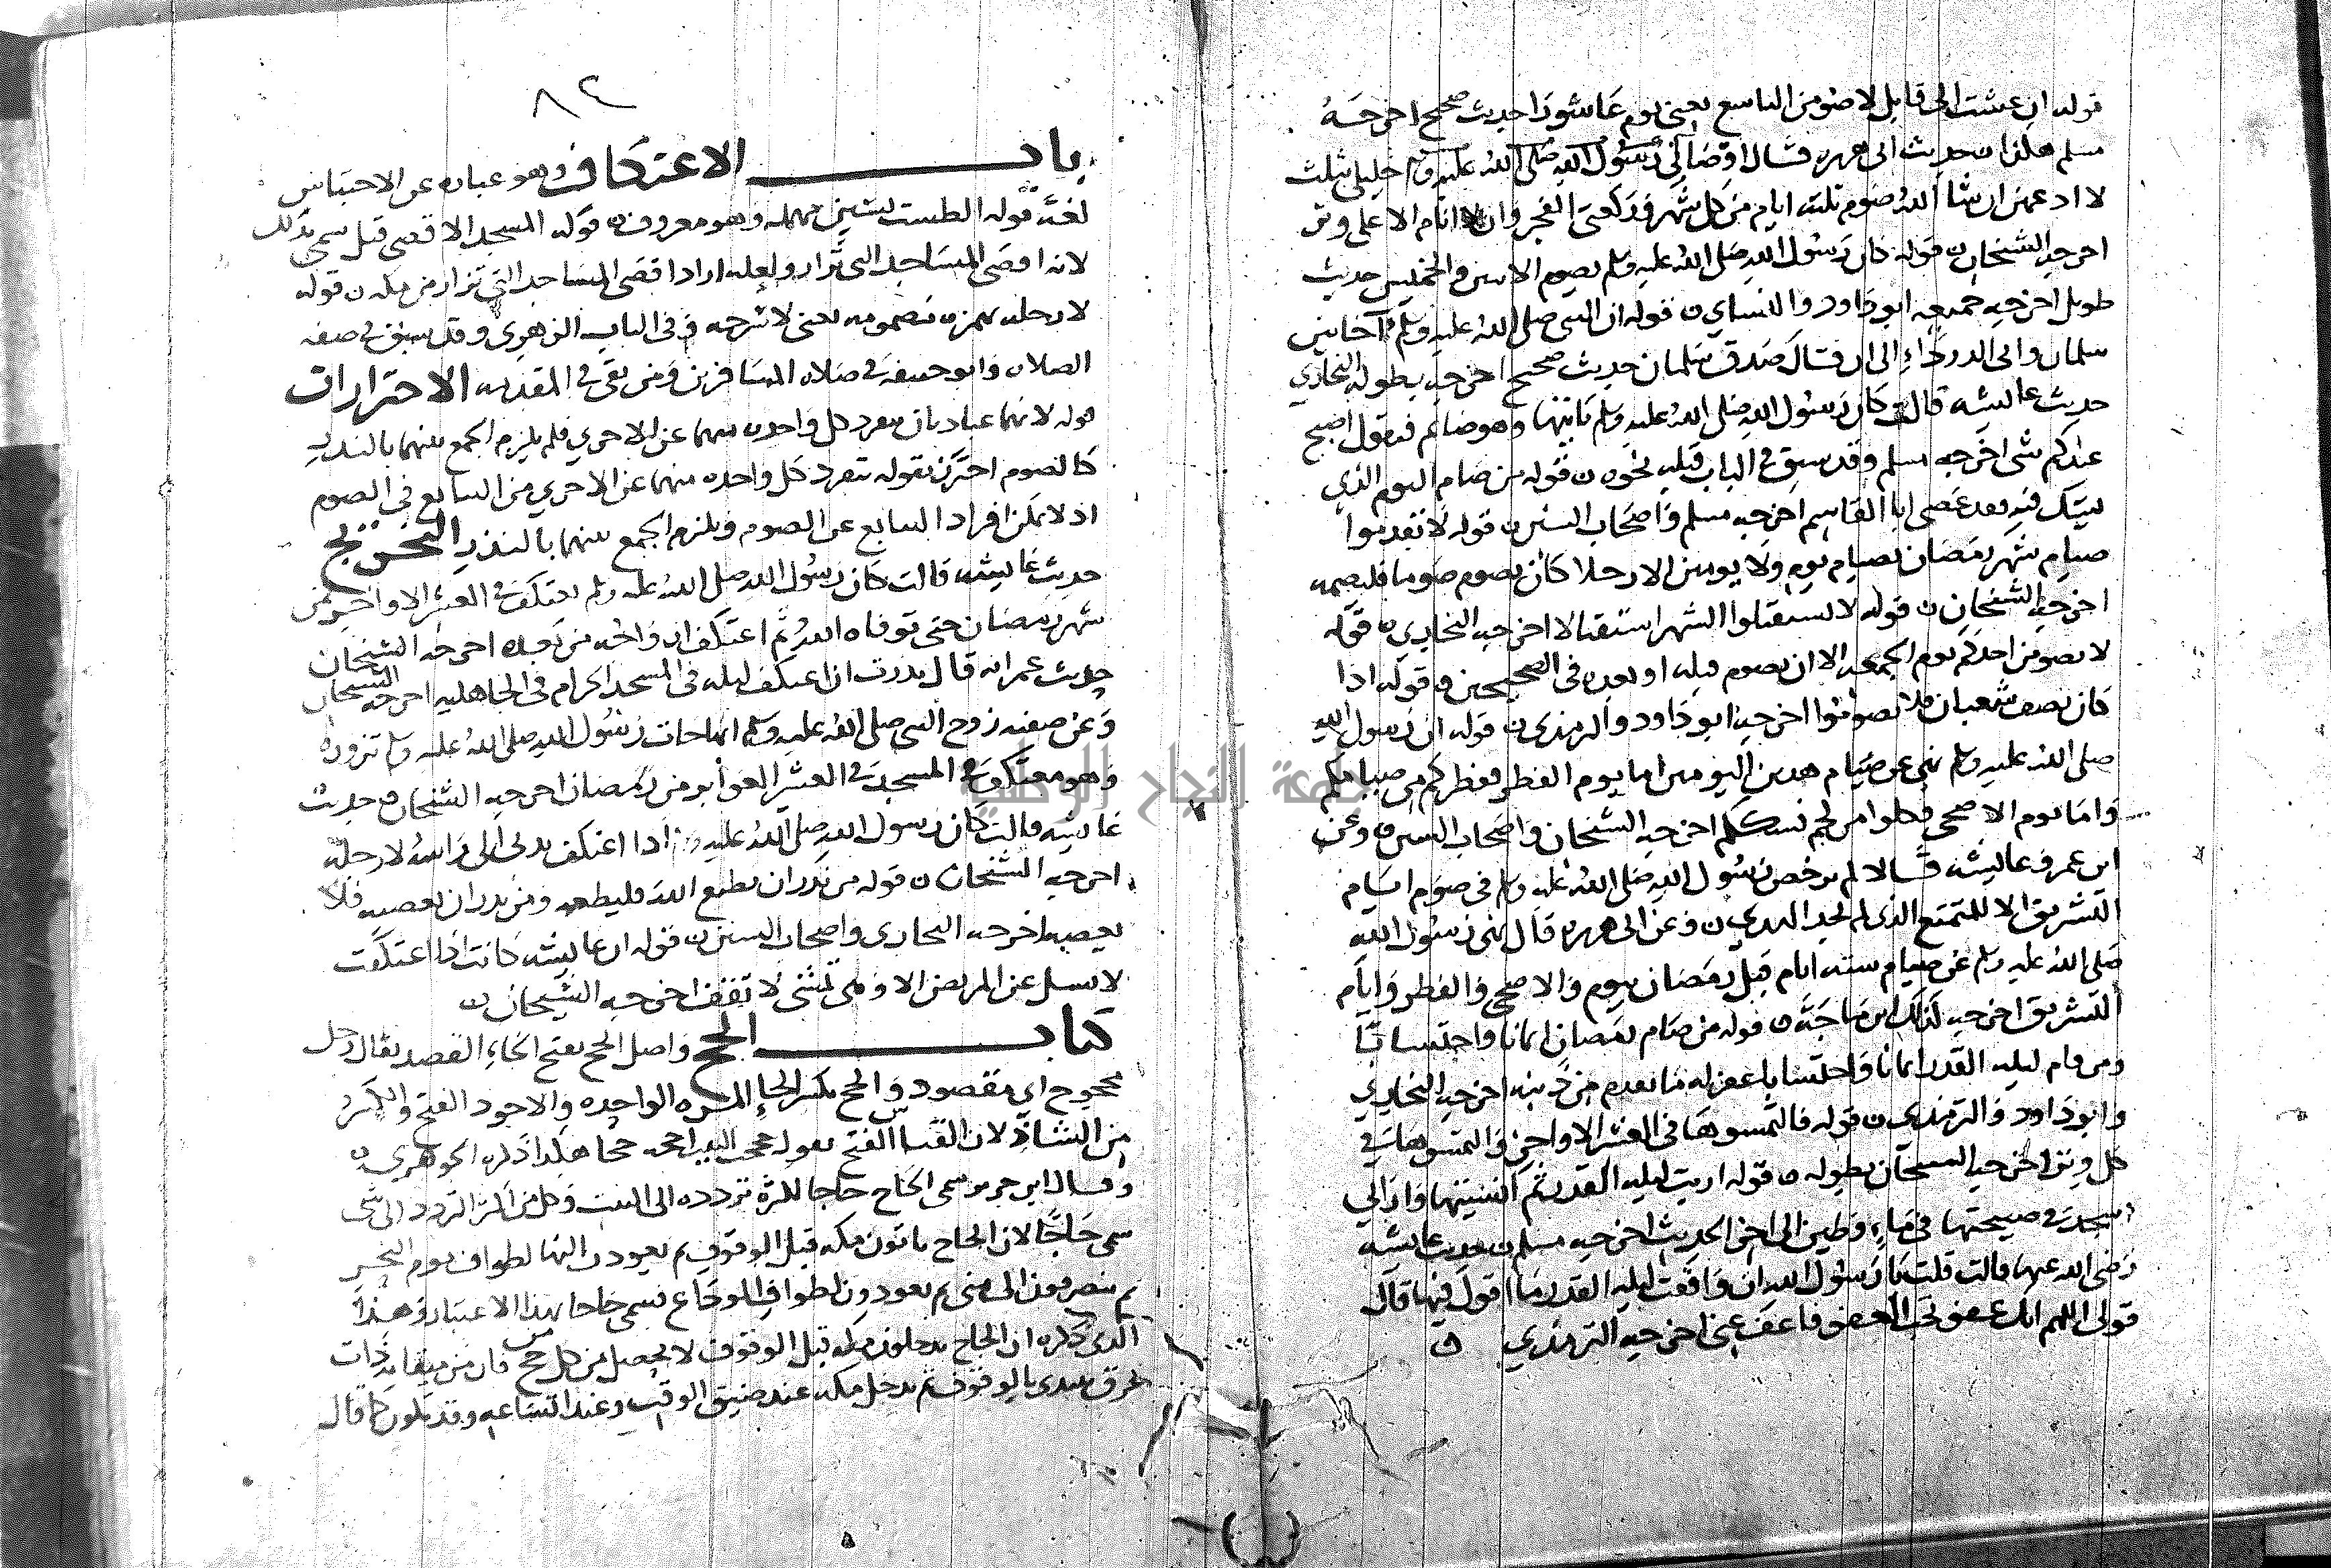 قوله ان عشت الى قابل لاصومن التاسع يعني يوم عاشورا حديث صحيح اخرجه
مسلم هكذا حديث ابي هريرة قال اوصاني رسول الله صلى الله عليه وسلم خليلي بثلث
لا ادعهن ان شا الله صوم ثلثه ايام من كل شهر وركعتي الفجر وان لا انام الا على وتر
اخرجه الشيخان قوله كان رسول الله صلى الله عليه وسلم يصوم الاثنين والخميس حديث
طويل اخرجه جميعه ابو داود والنساي قوله ان النبي صلى الله عليه وسلم آخا بين
سلمان وابي الدرداء الى ان قال صدق سلمان حديث صحيح اخرجه بطوله البخاري
حديث عايشه قالت كان رسول الله صلى الله عليه وسلم ياتيها وهو صايم فيقول اصبح
عندكم شي اخرجه مسلم وقد سبق في الباب قبله نحوه قوله من صام اليوم الذي
يشك فيه فقد عصى ابا القاسم اخرجه مسلم واصحاب السنن قوله لا تقدموا
صيام شهر رمضان بصيام يوم ولا يومين الا رجلا كان يصوم صوما فليصمه
اخرجه الشيخان قوله لا تستقبلوا الشهر استقبالا اخرجه البخاري قوله
لا يصومن احدكم يوم الجمعه الا ان يصوم قبله او بعده في الصحيحين قوله اذا
كان نصف شعبان فلا تصوموا اخرجه ابو داود والترمذي قوله ان رسول الله
صلى الله عليه وسلم نهى عن صيام هذين اليومين اما يوم الفطر ففطركم من صيامكم
واما يوم الاضحى فكلوا من لحم نسككم اخرجه الشيخان واصحاب السنن وعن
ابن عمر وعايشه قالا لم يرخص رسول الله صلى الله عليه وسلم في صوم ايام
التشريق الا للمتمتع الذي لم يجد الهدي وعن ابي هريرة قال نهى رسول الله
صلى الله عليه وسلم عن صيام سته ايام قبل رمضان بيوم والاضحى والفطر وايام
التشريق اخرجه كذلك ابن ماجة قوله من صام رمضان ايمانا واحتسابا
ومن قام ليله القدر ايمانا واحتسابا غفر له ما تقدم من ذنبه اخرجه البخاري
وابو داود والترمذي قوله فالتمسوها في العشر الاواخر والتمسوها في
كل وتر اخرجه الشيخان بطوله قوله اريت ليله القدر ثم انسيتها واراني
اسجد في صبيحتها في ماء وطين الى اخر الحديث اخرجه مسلم حديث عايشه
رضي الله عنها قالت قلت يا رسول الله ان وافقت ليله القدر ما اقول فيها قال
قولي اللهم انك عفو تحب العفو فاعف عني اخرجه الترمذي
٨٢
باب الاعتكاف وهو عباره عن الاحتباس
لغة قوله الطست بشين مهمله وهو معروف قوله المسجد الاقصى قيل سمي بذلك
لانه اقصى المساجد التي تزار ولعله اراد اقصى المساجد التي تزار من مكه قوله
لا رحله بهمزه مضمومه يعني لا شرحه وفي الباب الزهري وقد سبق في صفه
الصلاه وابو حنيفه في صلاه المسافرين ومن بقي في المقدمه الاحترازات
قوله لانهما عبادتان تنفرد كل واحده منهما عن الاخري فلم يلزم الجمع بينهما بالنذر
كالصوم احترز بقوله تنفرد كل واحده منهما عن الاخري من التتابع في الصوم
اذ لا يمكن افراد التتابع عن الصوم ويلزم الجمع بينهما بالنذر التخريج
حديث عايشه قالت كان رسول الله صلى الله عليه وسلم يعتكف في العشر الاواخر من
شهر رمضان حتى توفاه الله ثم اعتكف ازواجه من بعده اخرجه الشيخان
حديث عمر انه قال نذرت ان اعتكف ليله في المسجد الحرام في الجاهليه اخرجه الشيخان
وعن صفيه زوج النبي صلى الله عليه وسلم انها جات رسول الله صلى الله عليه وسلم تزوره
وهو معتكف في المسجد في العشر الغوابر من رمضان اخرجه الشيخان حديث
عايشه قالت كان رسول الله صلى الله عليه وسلم اذا اعتكف يدلي الي راسه لارجله
اخرجه الشيخان قوله من نذر ان يطيع الله فليطعه ومن نذر ان يعصيه فلا
يعصيه اخرجه البخاري واصحاب السنن قوله ان عايشه كانت اذا اعتكفت
لا تسل عن المريض الا وهي تمشي لا تقف اخرجه الشيخان
كتاب الحج واصل الحج بفتح الحاء القصد يقال رجل
محجوج اي مقصود والحج بكسر الحاء المره الواحده والاجود الفتح والكسر
من الشاذ لان القياس الفتح يقول حججت البيت احجه حجا هكذا ذكره الجوهري
وقال ابن جرير سمي الحاج حاجا لكثرة تردده الى البيت وكل من اكثر التردد الى شي
سمي حاجا لان الحاج ياتون مكه قبل الوقوف ثم يعودن اليها لطواف يوم النحر
ثم ينصرفون الى منى ثم يعودون لطواف الوداع فسمي حاجا بهذا الاعتبار وهذا
الذي ذكره ان الحاج يدخلون مكه قبل الوقوف لا يحصل من كل حج فان من ميقاته ذات
عرق يبتدي بالوقوف ثم يدخل مكه عند ضيق الوقت وعند اتساعه وقد يكون كما قال
جامعة النجاح الوطنية